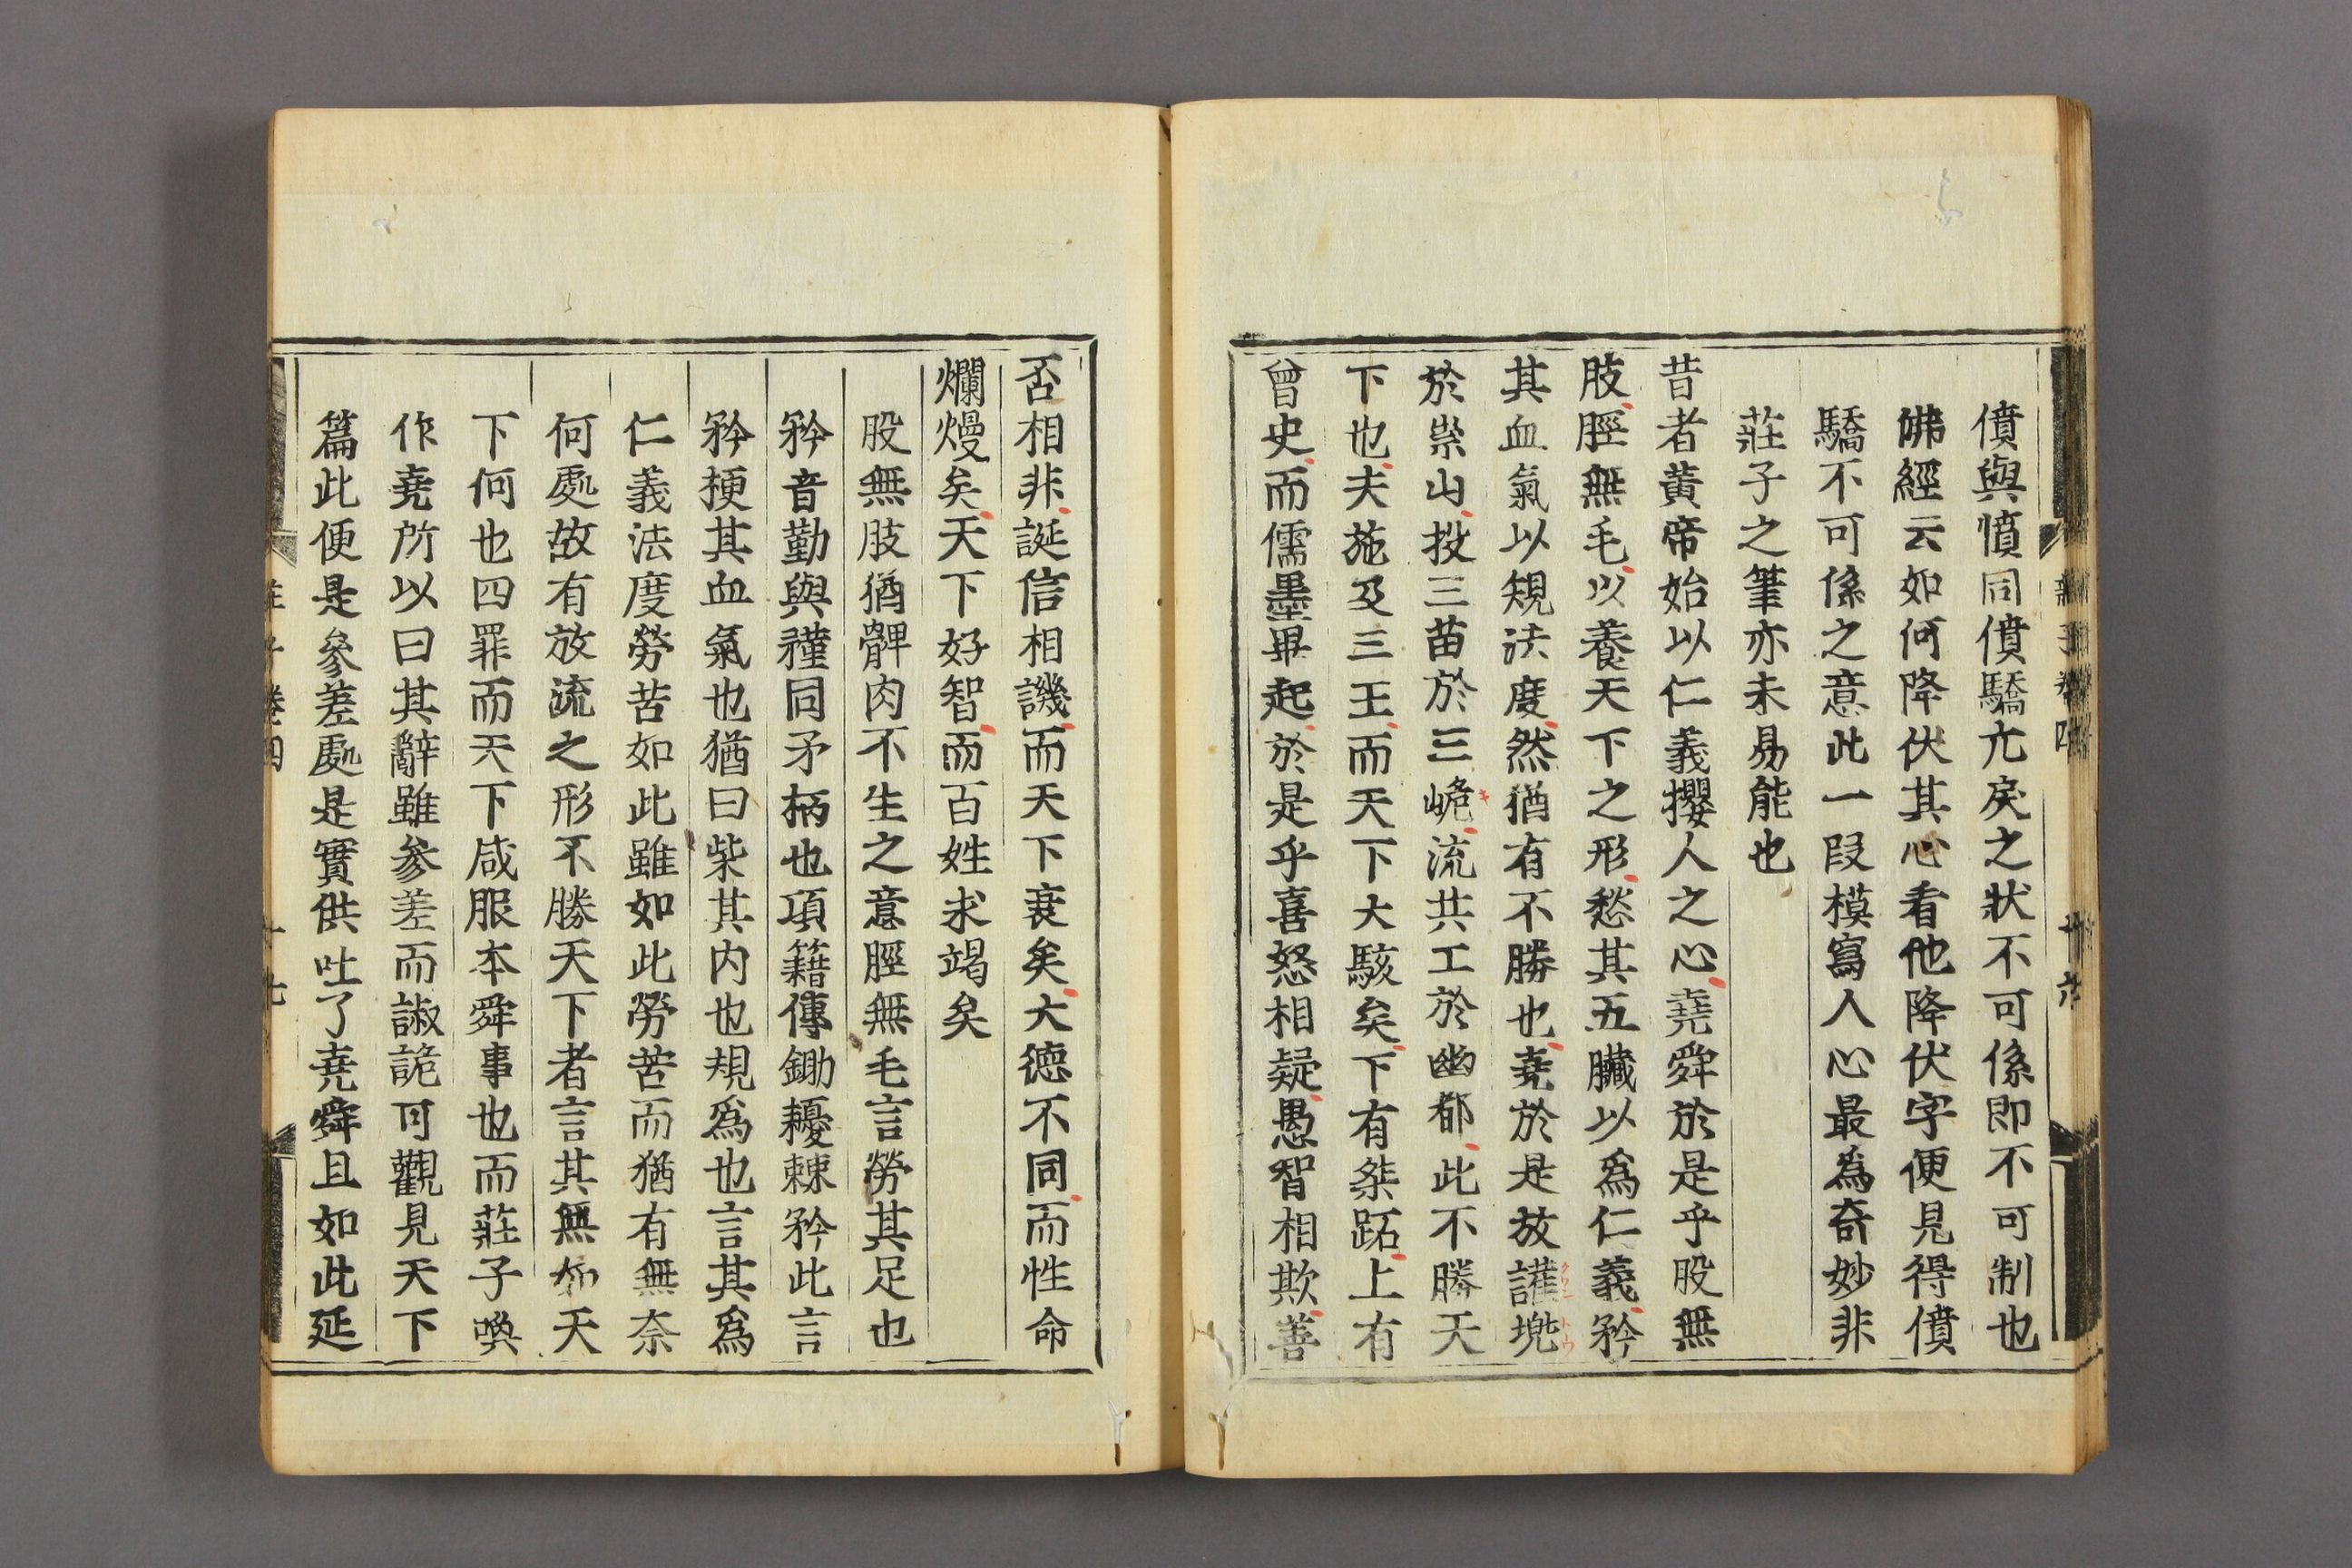 僨與憤同僨驕亢戾之狀不可係即不可制也
佛經云如何降伏其心看他降伏字便見得僨
驕不可係之意此一段模寫人心最為奇妙非
莊子之筆亦未易能也
昔者黃帝始以仁義攖人之心堯舜於是乎股無
肢脛無毛以養天下之形愁其五臟以爲仁義矜
其血氣以規法度然猶有不勝也堯於是放讙兠
於崇山投三苗於三峗流共工於幽都此不勝天
下也夫施及三王而天下大駭矣下有桀跖上有
曾史而儒墨畢起於是乎喜怒相疑愚智相欺善
否相非誕信相譏而天下衰矣大德不同而性命
爛熳矣天下好智而百姓求竭矣
股無肢猶髀肉不生之意脛無毛言勞其足也
矜音勤與䅖同矛柄也項籍傳鋤耰棘矜此言
矜梗其血氣也猶曰柴其内也規爲也言其爲
仁義法度勞苦如此雖如此勞苦而猶有無奈
何處故有放流之形不勝天下者言其無奈天
下何也四罪而天下咸服本舜事也而莊子喚
作堯所以曰其辭雖參差而諔詭可觀見天下
篇此便是參差處是實供吐了堯舜且如此延
莊子卷四
十七